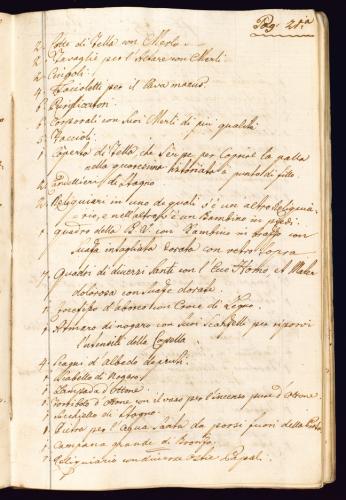 Pag. 21.a
2. Cotte di Tella con Merlo.
2. Tovaglie per l'Altare con Merli
2. Cingoli.
4. Faccioletti per il Lava manus.
6. Purificatori.
6. Corporali con suoi Merli di più qualità
5. Faccioli.
1. Coperta di Tella, che serve per Coprire la palla
nella quaresima historiata a punta di fillo.
2. Candellieri di Stagno.
2. Reliquiari in uno de quali v'è un altro Reliquia-
rio, e nell'altro v'è un Bambino in piedi.
1. quadro della B.V. con Bambino in brazzo con
Suaza intagliata Dorata con vetro sopra
7. Quadri di diversi Santi con l'Ecce Homo, et Mater
dolorosa con Suaze dorate.
1. Crocefisso d'aboreo con Croce di Legno.
1. Armaro di nogara con suoi Scaffetti per riporvi
l'utensili della Capella
4. Scagni d'Albedo
1. di Nogara
1. Lampada d'Ottone.
1. Toribolo d'Ottone con il vaso per l'incenso pure d'Ottone.
1. Sechiello di Stagno
1. Pietra per l'Aqua Santa da porsi fuori della Porta
1. Campana grande di Bronzo.
1. Reliquiario con diverse